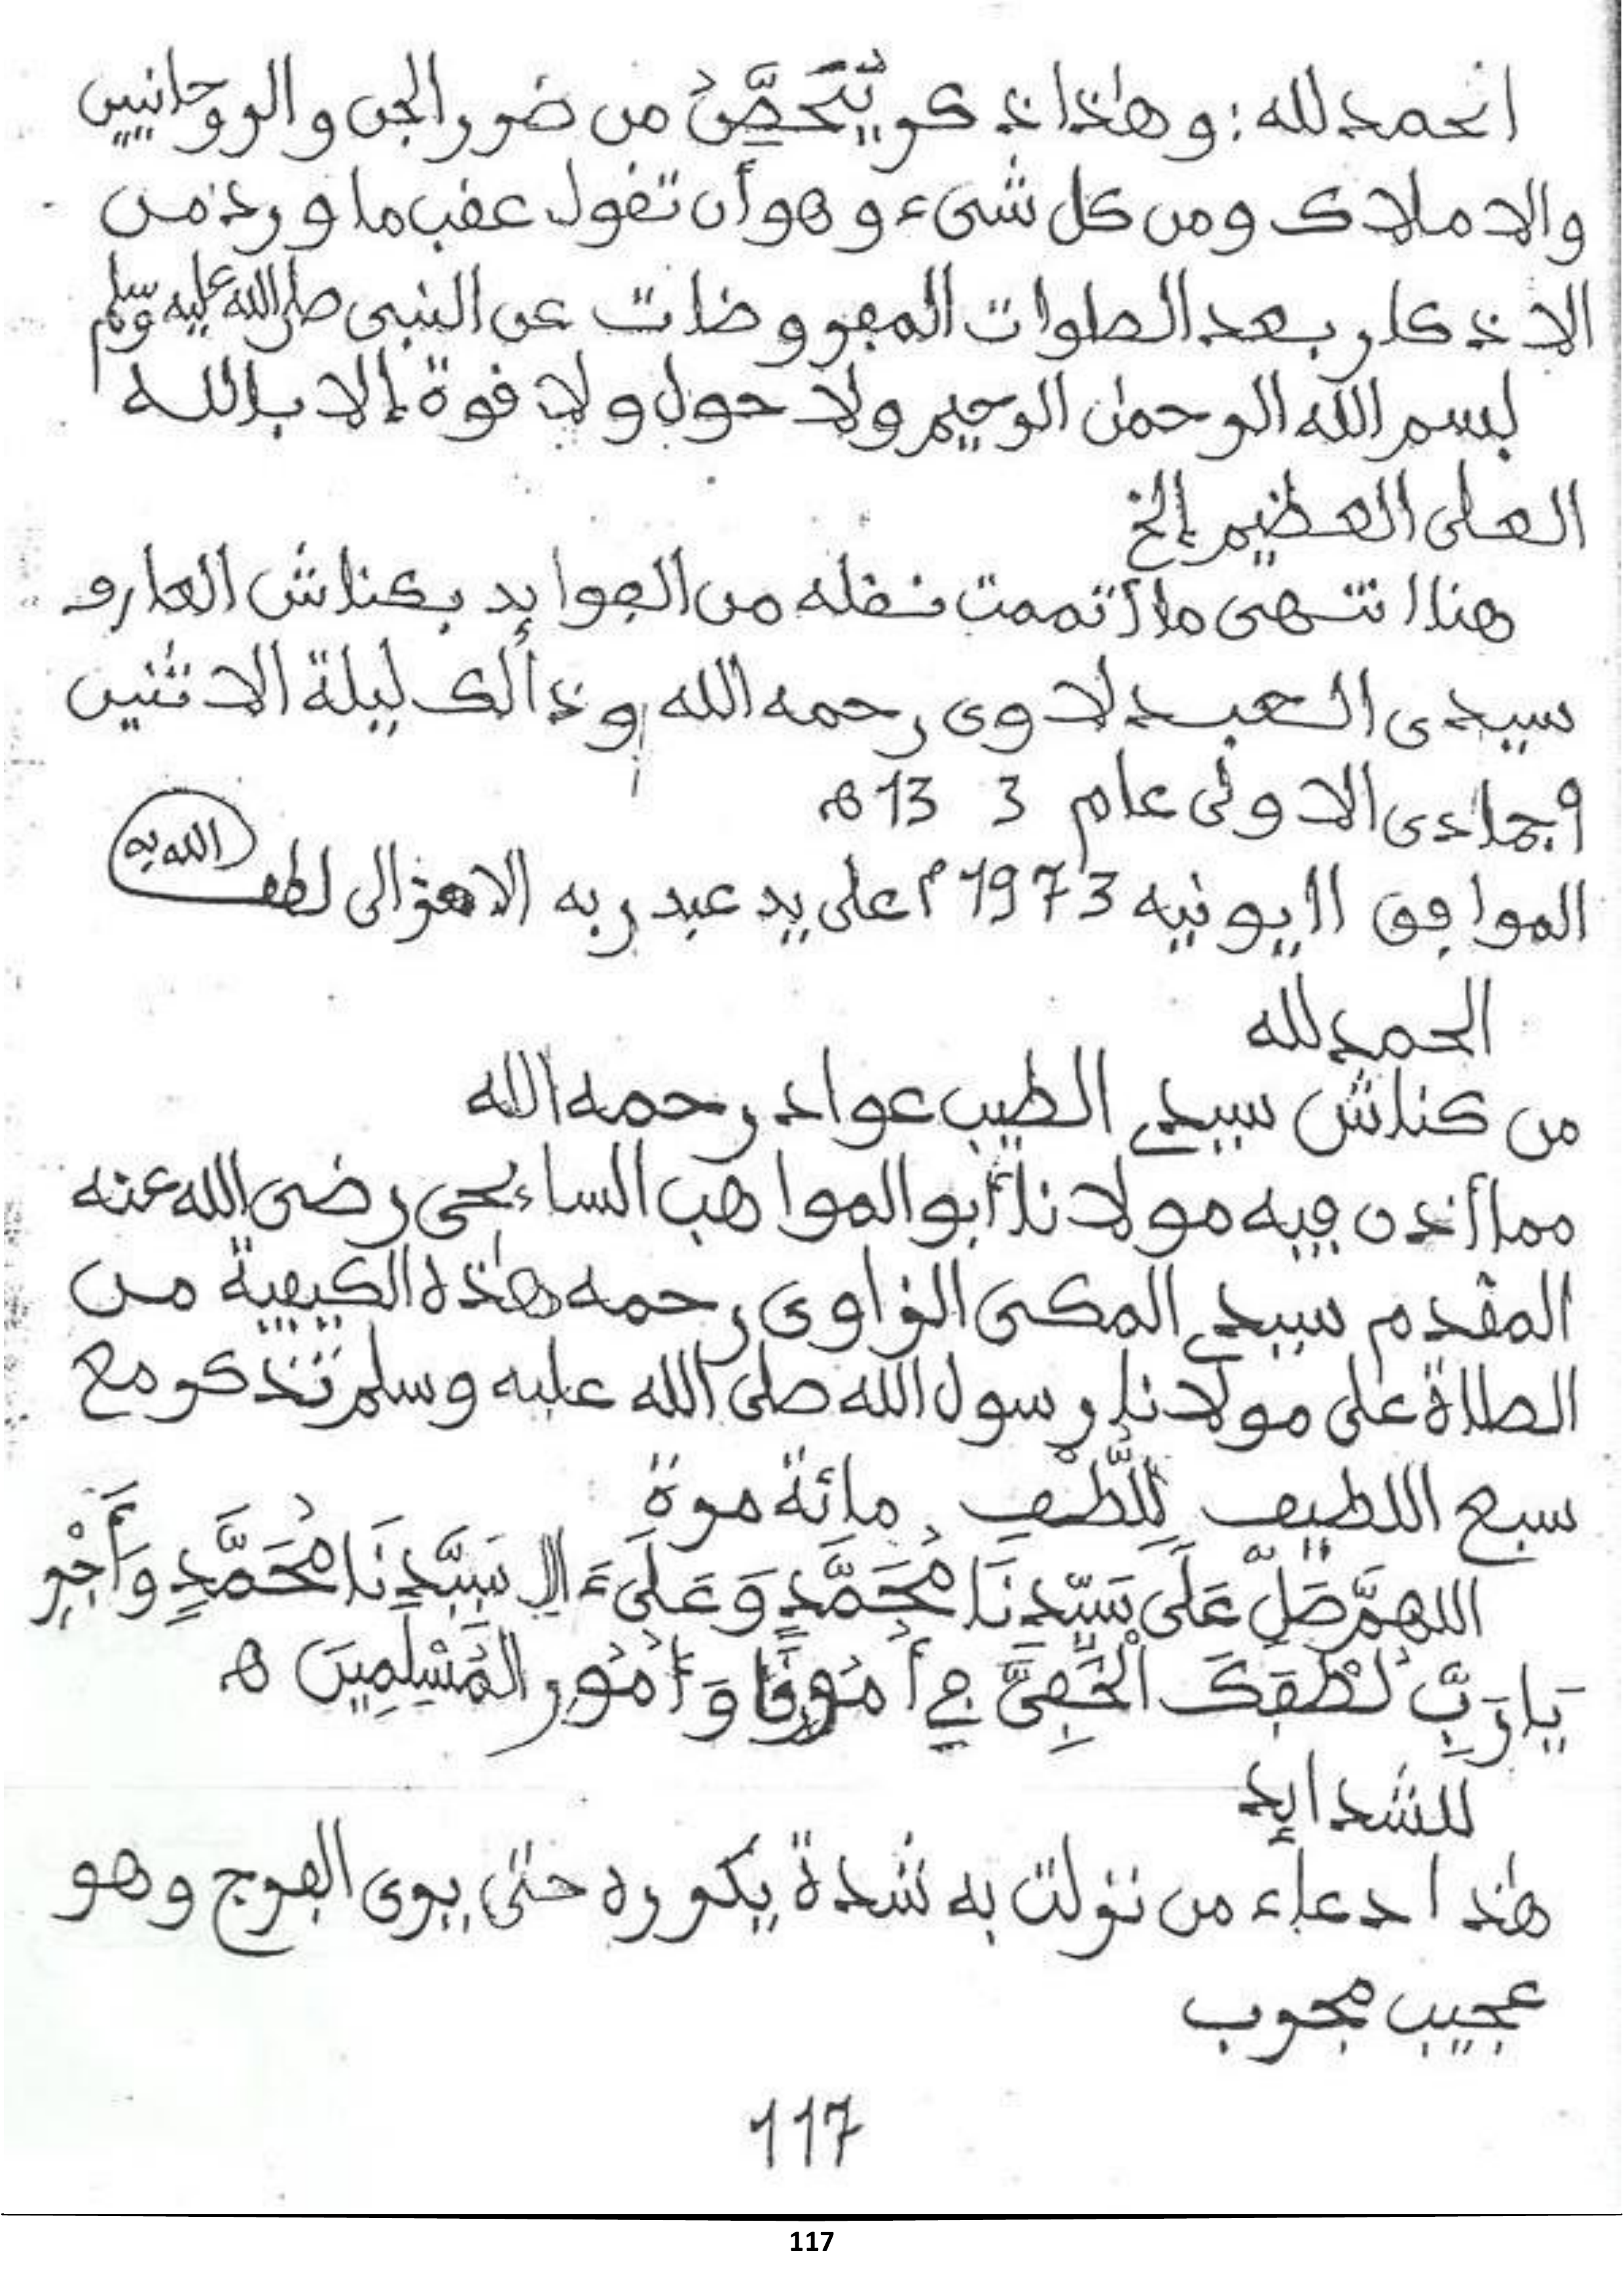 الحمد لله: وهذا ذكر يُتَحَصَّنُ من ضرر الجن والروحانيين
والاملاك ومن كل شىء وهو أن تقول عقب ما ورد من
الاذكار بعد الصلوات المفروضات عن النبى صلى الله عليه وسلم
بسم الله الرحمن الرحيم ولا حول ولا قوة إلا بالله
العلى العظيم إلخ
هنا انتهى ما أتممت نقله من الفوايد بكناش العارف
سيدى العبدلاوى رحمه الله وذالك ليلة الاثنين
9 جمادى الاولى عام 3 13 ه
الموافق 11 يونيه 1973 م على يد عبد ربه لطف الله به
الحمد لله
من كناش سيدي الطيب عواد رحمه الله
مما أذن فيه مولانا أبو المواهب السائحى رضى الله عنه
المقدم سيدي المكى الزاوى رحمه هذه الكيفية من
الصلاة على مولانا رسول الله صلى الله عليه وسلم تذكر مع
سبع اللطيف لِلُّطْفِ مائة مرة
اللهمَّ صَلِّ عَلَى سَيِّدِنَا مُحَمَّدٍ وَعَلَىٰ ءَالِ سَيِّدِنَا مُحَمَّدٍ وَأَجْرِ
يَا رَبِّ لُطْفَكَ الْخَفِىَّ فِي أُمُورِنَا وَأُمُورِ الْمُسْلِمِينَ ه
للشدايد
هذا دعاء من نزلت به شدة يكرره حتى يرى الفرج وهو
عجيب مجرب
117
117